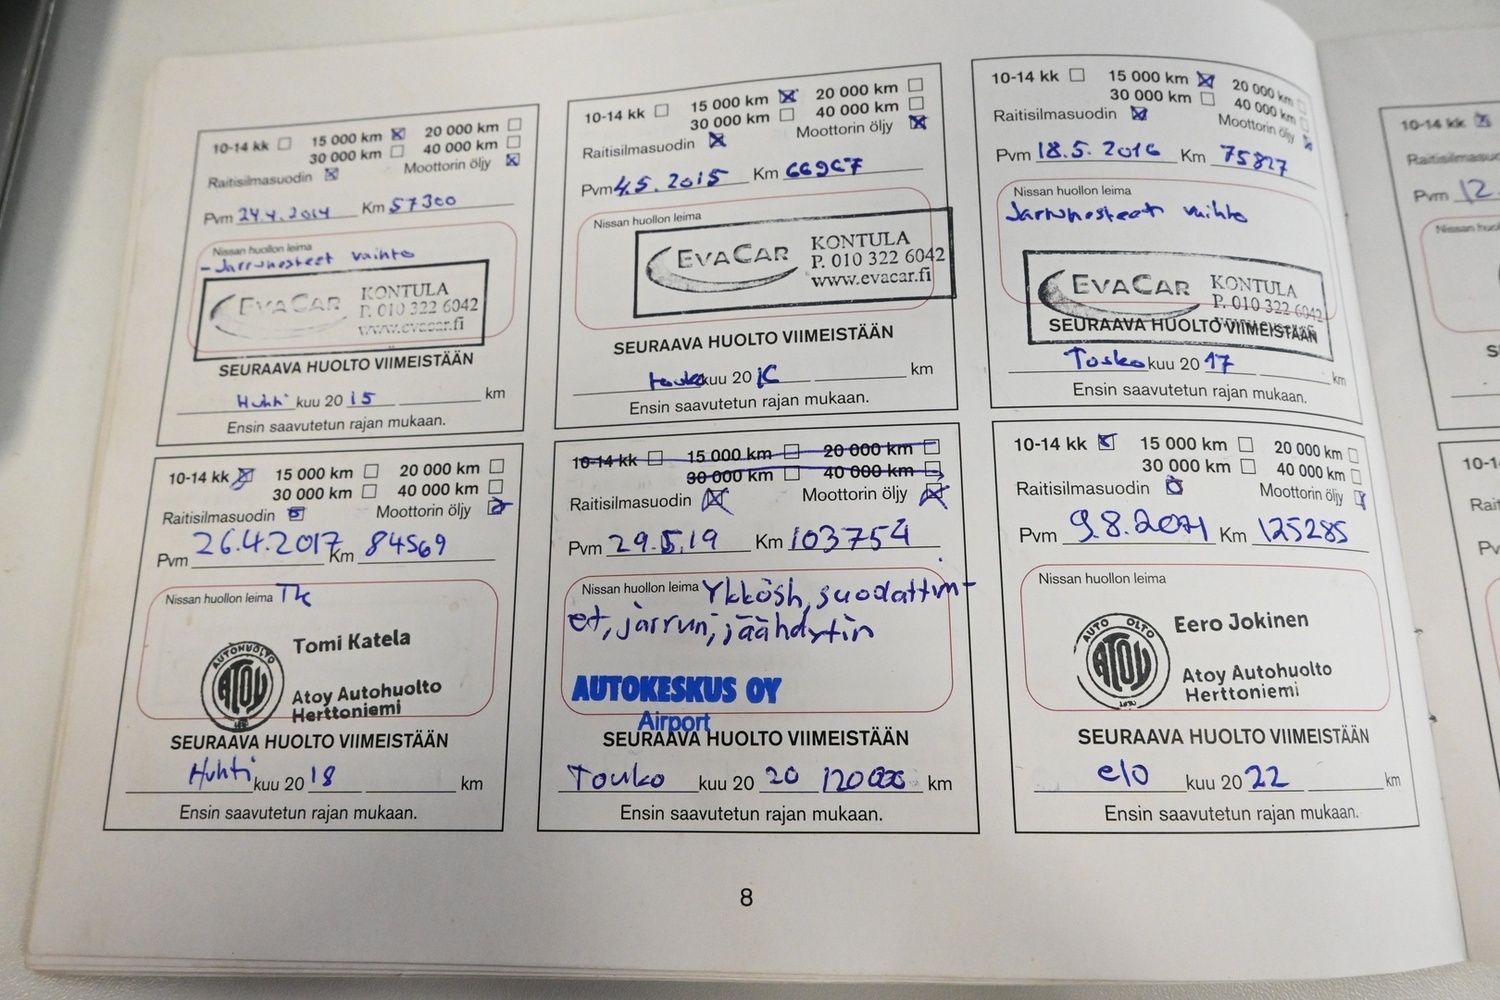 10-14 kk 15 000 km 20 000 km
30 000 km 40 000 km
Raitisilmasuodin Moottorin öljy
Pvm 24.4.2014 Km 57300
Nissan huollon leima
- Jarrunesteet vaihto
EVACAR KONTULA
P. 010 322 6042
www.evacar.fi
SEURAAVA HUOLTO VIIMEISTÄÄN
Huhti kuu 20 15 km
Ensin saavutetun rajan mukaan.
10-14 kk 15 000 km 20 000 km
30 000 km 40 000 km
Raitisilmasuodin Moottorin öljy
Pvm 4.5.2015 Km 66967
Nissan huollon leima
EVACAR KONTULA
P. 010 322 6042
www.evacar.fi
SEURAAVA HUOLTO VIIMEISTÄÄN
touko kuu 20 16 km
Ensin saavutetun rajan mukaan.
10-14 kk 15 000 km 20 000 km
30 000 km 40 000 km
Raitisilmasuodin Moottorin öljy
Pvm 18.5.2016 Km 75827
Nissan huollon leima
Jarrunesteet vaihto
EVACAR KONTULA
P. 010 322 6042
SEURAAVA HUOLTO VIIMEISTÄÄN
Touko kuu 20 17 km
Ensin saavutetun rajan mukaan.
10-14 kk 15 000 km 20 000 km
30 000 km 40 000 km
Raitisilmasuodin Moottorin öljy
Pvm 26.4.2017 Km 84569
Nissan huollon leima TK
Tomi Katela
AUTOHUOLTO
ATOY
Atoy Autohuolto
Herttoniemi
SEURAAVA HUOLTO VIIMEISTÄÄN
Huhti kuu 20 18 km
Ensin saavutetun rajan mukaan.
10-14 kk 15 000 km 20 000 km
30 000 km 40 000 km
Raitisilmasuodin Moottorin öljy
Pvm 29.5.19 Km 103754
Nissan huollon leima Ykkösh, suodattim-
et, jarrun, jäähdytin
AUTOKESKUS OY
Airport
SEURAAVA HUOLTO VIIMEISTÄÄN
Touko kuu 20 20 120000 km
Ensin saavutetun rajan mukaan.
10-14 kk 15 000 km 20 000 km
30 000 km 40 000 km
Raitisilmasuodin Moottorin öljy
Pvm 9.8.2021 Km 125285
Nissan huollon leima
Eero Jokinen
ATOY
Atoy Autohuolto
Herttoniemi
SEURAAVA HUOLTO VIIMEISTÄÄN
elo kuu 20 22 km
Ensin saavutetun rajan mukaan.
8
10-14 kk
Pvm 12.